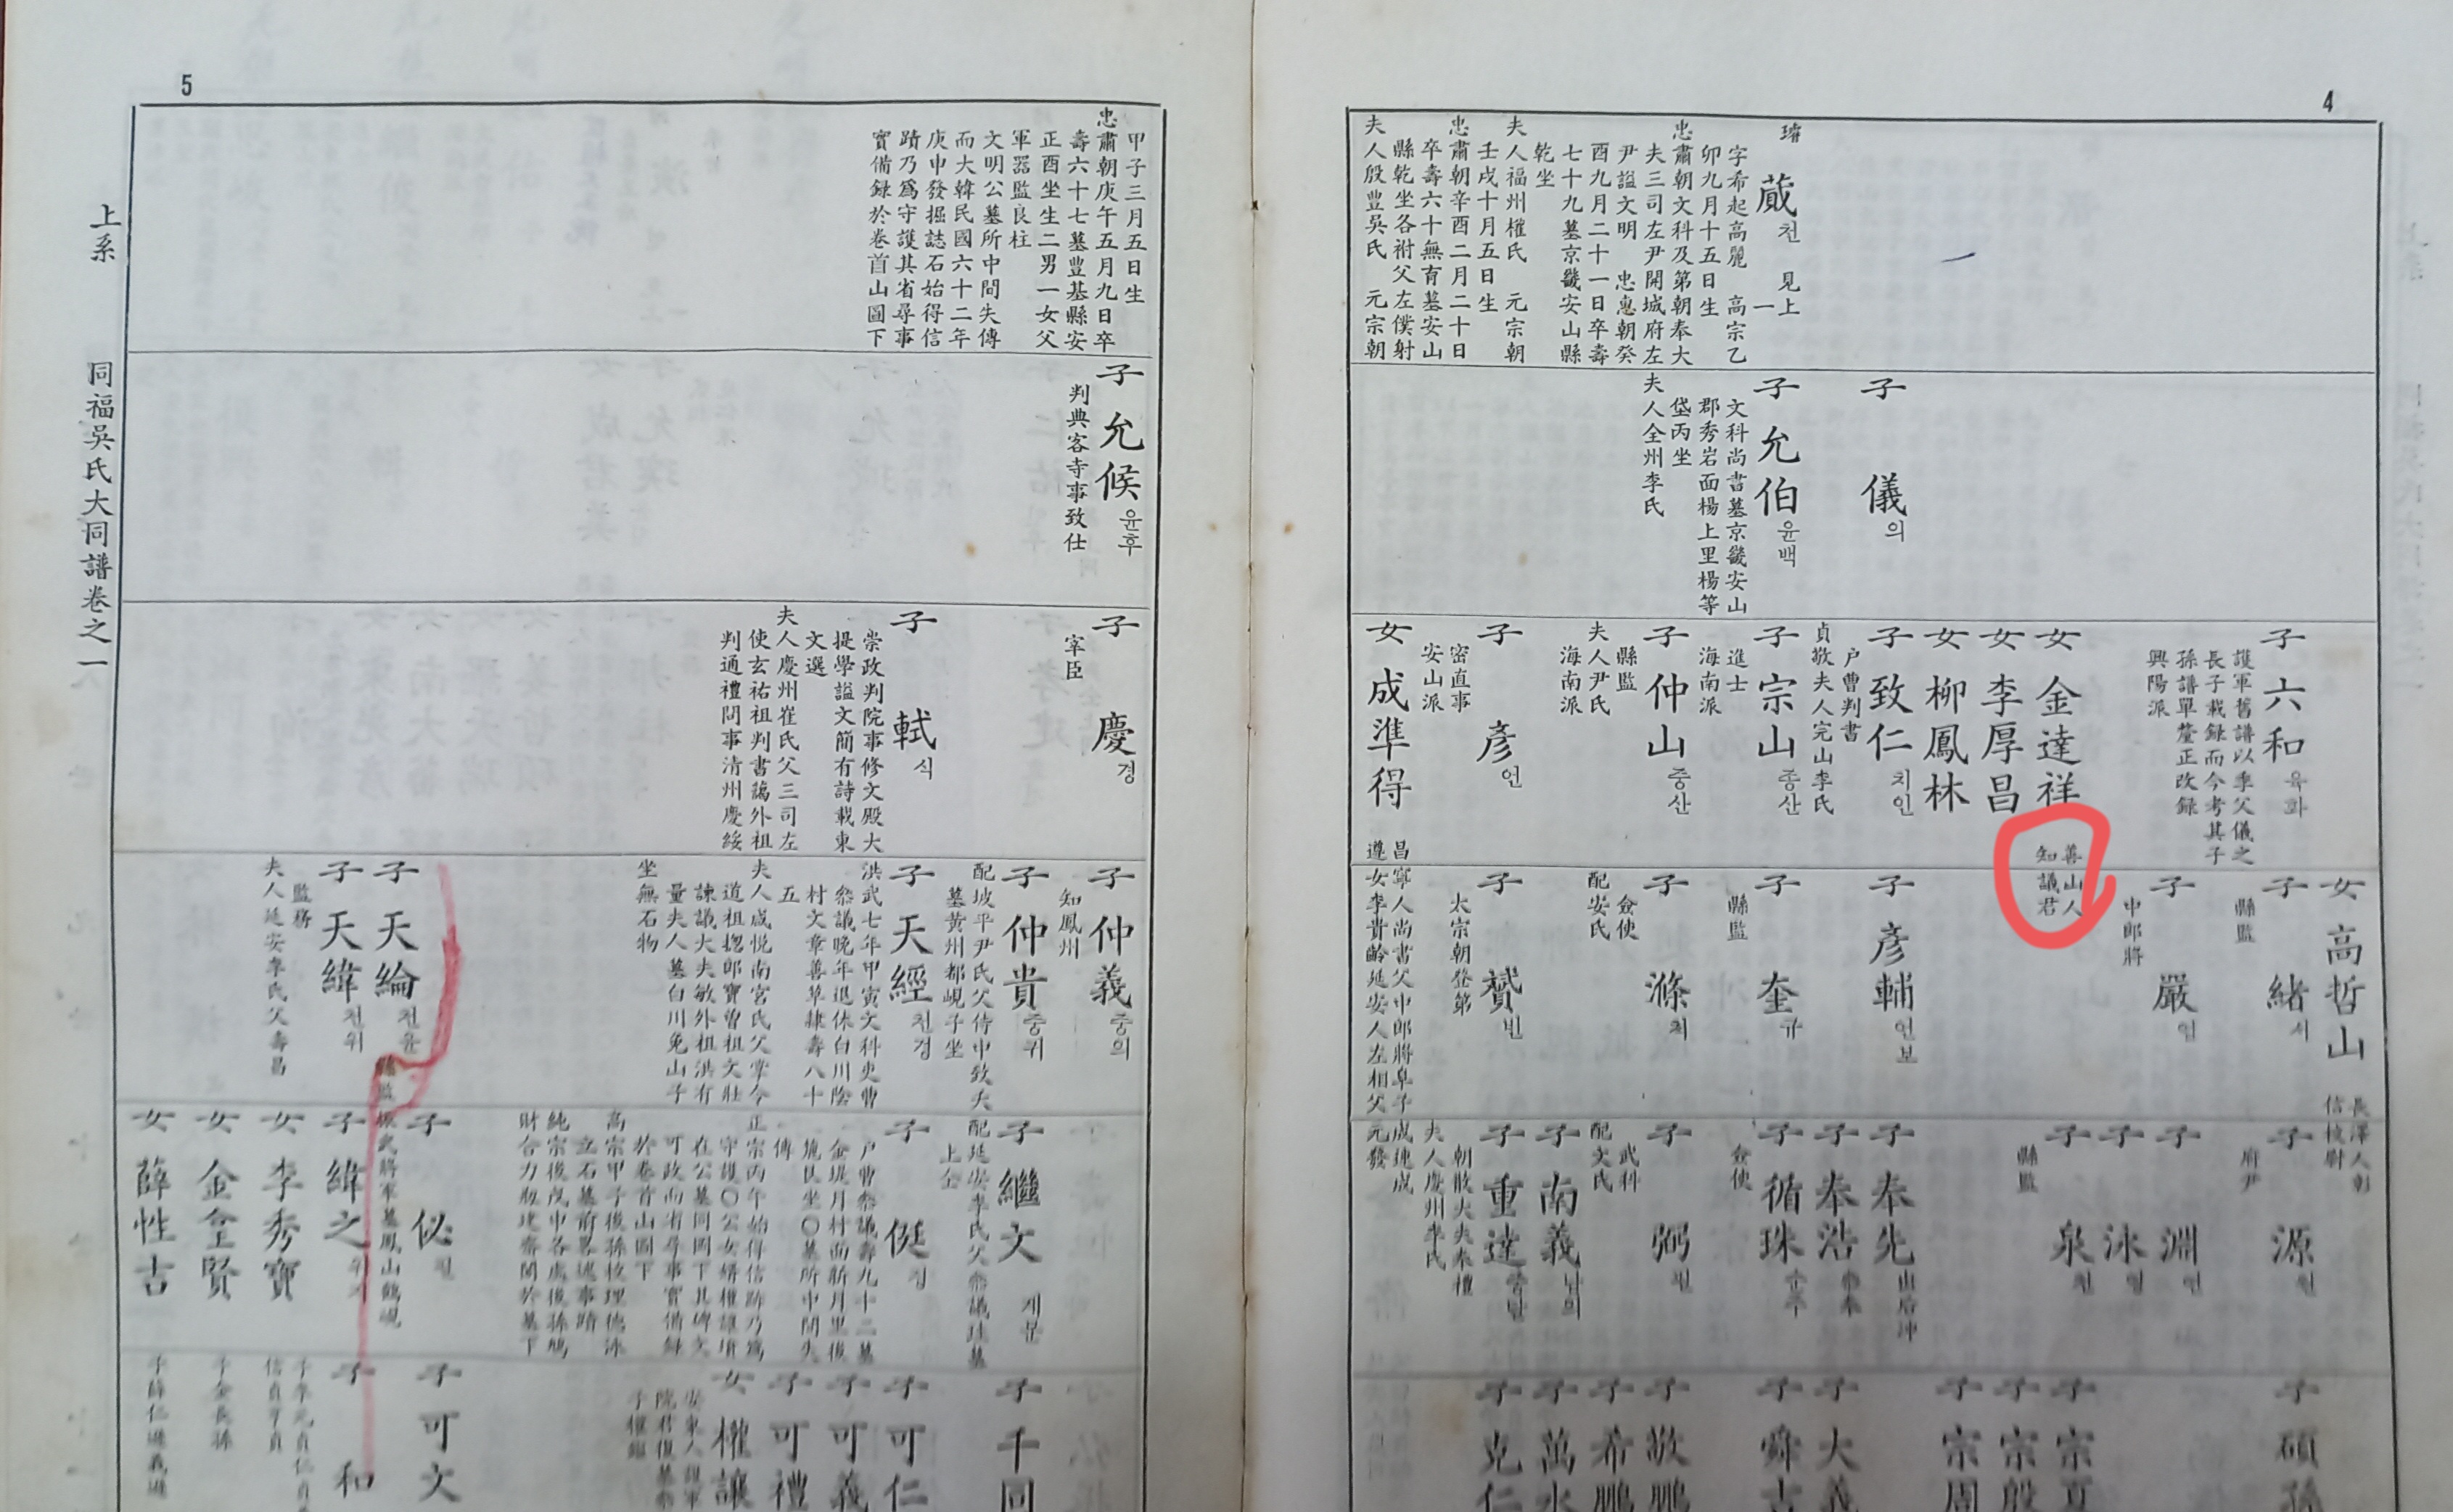 4
瑨
蕆천 見上
一
字希起高麗 高宗乙
卯九月十五日生
忠肅朝文科及第朝奉大
夫三司左尹開城府左
尹謚文明 忠惠朝癸
酉九月二十一日卒壽
七十九墓京畿安山縣
乾坐
夫人福州權氏 元宗朝
壬戌十月五日生
忠肅朝辛酉二月二十日
卒壽六十無育墓安山
縣乾坐各祔父左僕射
夫人殷豊吳氏 元宗朝
子 儀의
子 允伯윤백
文科尚書墓京畿安山
郡秀岩面楊上里楊等
垈丙坐
夫人全州李氏
子 六和육화
護軍舊譜以季父儀之
長子載録而今考其子
孫譜單釐正改録
興陽派
女 金達祥
善山人
知議君
女 李厚昌
女 柳鳳林
子 致仁치인
户曹判書
貞敬夫人完山李氏
子 宗山종산
進士
海南派
子 仲山중산
縣監
夫人尹氏
海南派
子 彦언
密直事
安山派
女 成準得
昌寧人尚書父中郎將阜子成建成
遵女李貴齡延安人左相父元發
女 高哲山
長澤人彰
信校尉
子 緒서
縣監
子 嚴엄
中郎將
子 彦輔언보
子 奎규
縣監
子 滌척
僉使
配安氏
子 贇빈
太宗朝登第
子 源원
府尹
子 淵연
子 泳영
子 泉천
縣監
子 奉先
子 奉浩
子 循珠순주
僉使
子 弼필
武科
配文氏
子 南義남의
子 重達중달
朝散大夫奉禮
夫人慶州李氏
子 碩孫
子 宗夏
子 宗殷
子 宗周
子 大義
子 舜古
子 敬鵬
子 希鵬
子 萬水
子 克仁
5
上系
同福吳氏大同譜卷之一
甲子三月五日生
忠肅朝庚午五月九日卒
壽六十七墓豊基縣安
正酉坐生二男一女父
軍器監良柱
文明公墓所中間失傳
而大韓民國六十二年
庚申發掘誌石始得信
蹟乃爲守護其省尋事
實備録於卷首山圖下
子 允候윤후
判典客寺事致仕
子 慶경
宰臣
子 軾식
崇政判院事修文殿大
提學謚文簡有詩載東
文選
夫人慶州崔氏父三司左
使玄祐祖判書藹外祖
判通禮問事清州慶綏
子 仲義중의
知鳳州
子 仲貴중귀
配坡平尹氏父侍中致夭
墓黄州都峴子坐
子 天經천경
洪武七年甲寅文科吏曹
叅議晩年退休白川陰
村文章善草隷壽八十
五
夫人咸悦南宮氏父掌令
道祖摠郎寶曽祖文壯
諫議大夫敏外祖洪有
量夫人墓白川兎山子
坐無石物
子 天綸천윤
縣監
子 天緯천위
監務
夫人延安李氏父壽昌
子 繼文계문
配延安李氏父叅議珪墓
上仝
子 侹정
户曹叅議壽九十二墓
金堤月村面新月里後
麓艮坐○墓所中間失
傳
正宗丙午始得信跡乃爲
守護○公女婿權讓墳
在公墓同岡下其碑文
可攷而省尋事實備録
於卷首山圖下
高宗甲子後孫校理德泳
立石墓前畧述事蹟
純宗後戊申各處後孫鳩
財合力刱建齋閣於墓下
子 佖필
振武將軍墓鳳山鶴峴
子 緯之위지
女 李秀寶
女 金全賢
女 薛性古
子 千同
子 可仁
子 可義
子 可禮
女 權讓
安東人護軍
子 可文
子 和
子金長孫